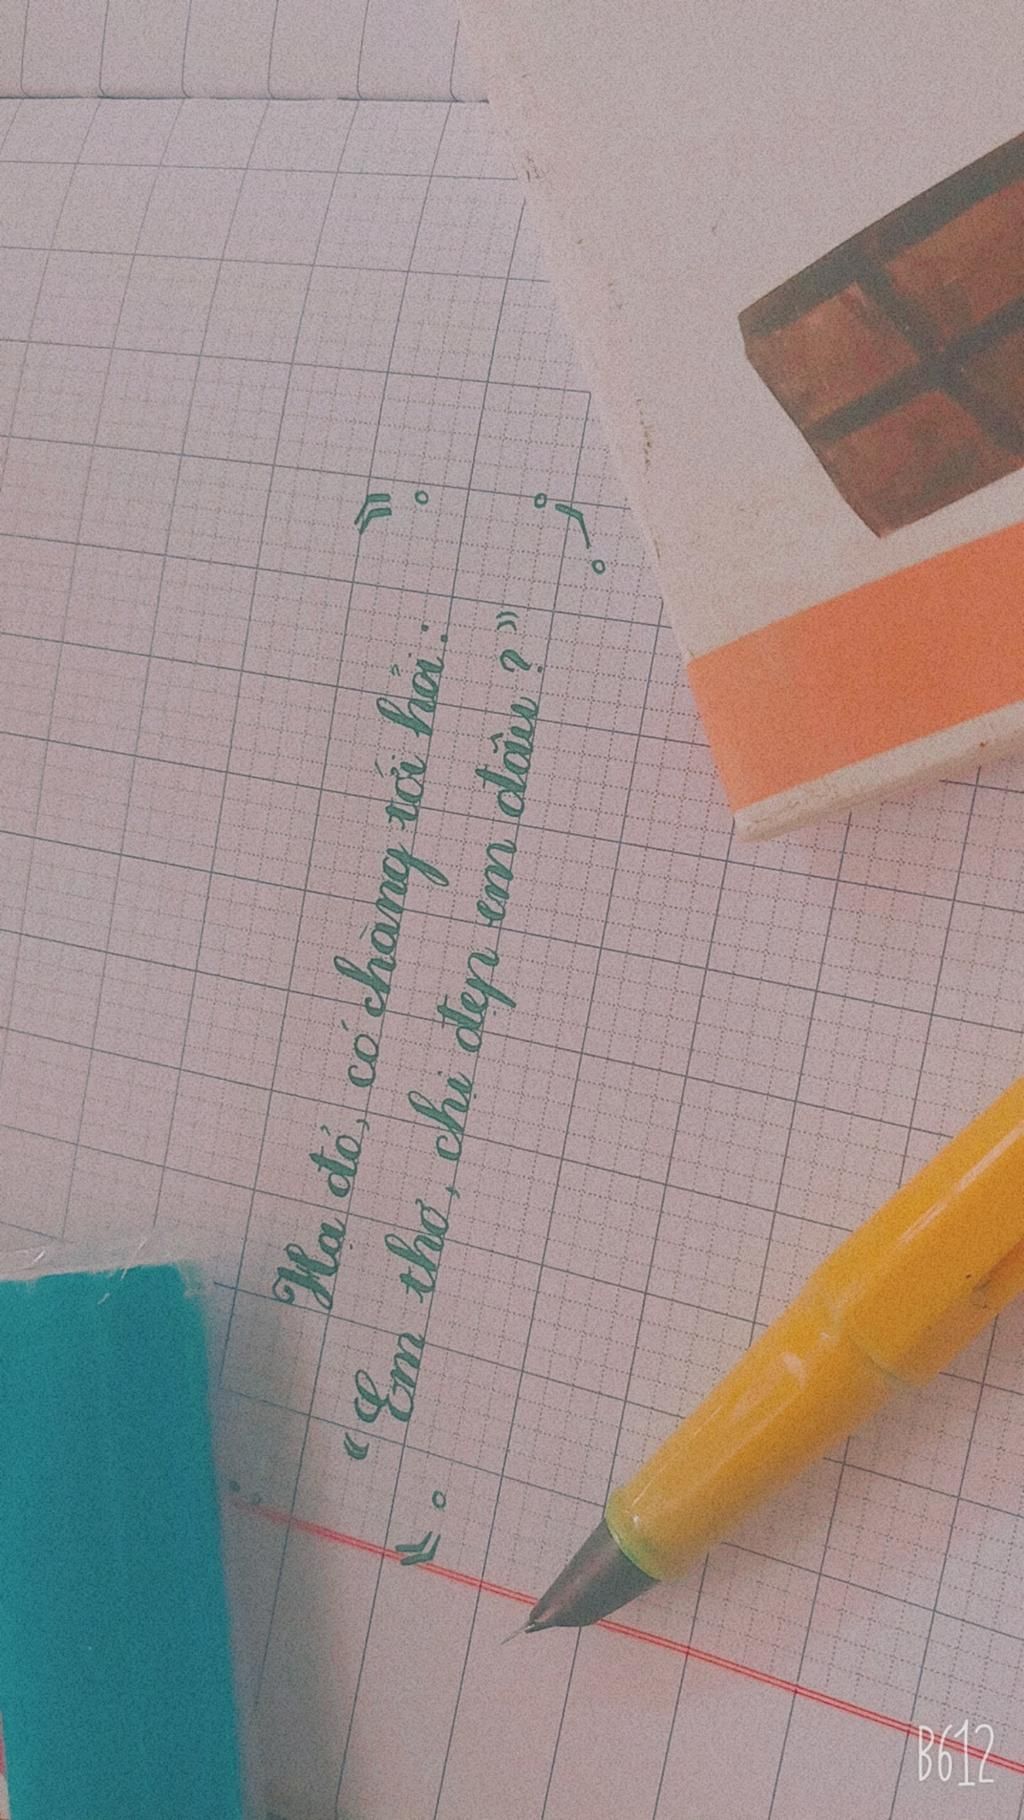 Hạ đỏ, có chàng tới hỏi:
"Em thơ, chị đẹp em đâu?"
B612